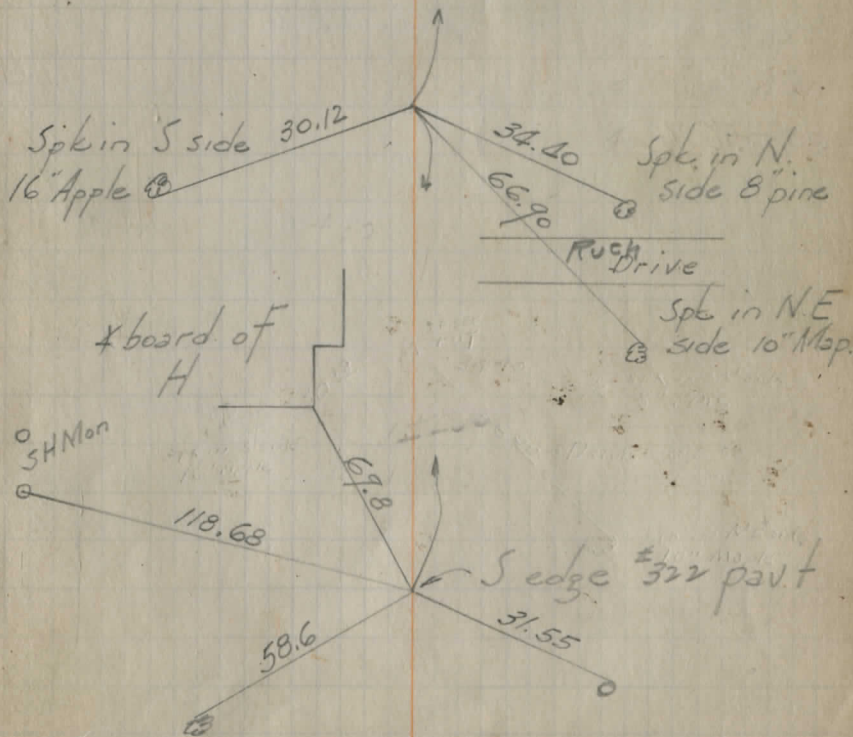 Spk in S side
16" Apple
30.12
34.40
66.90
Spk. in N.
side 8" pine
Ruch
Drive
Spk in N.E
side 10" Map.
board of
H
SH Mon
69.8
118.68
S edge #322 pav.t
58.6
31.55